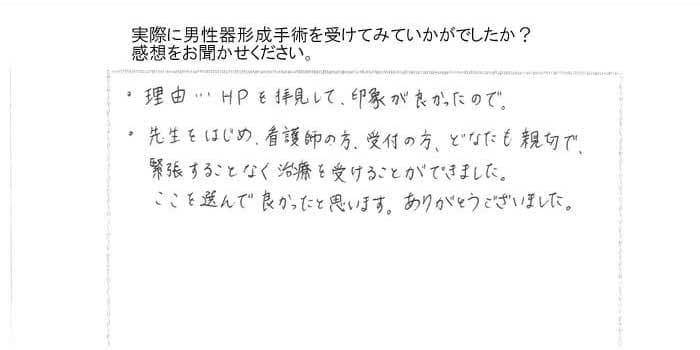 実際に男性器形成手術を受けてみていかがでしたか？
感想をお聞かせください。
・理由…HPを拝見して、印象が良かったので。
・先生をはじめ、看護師の方、受付の方、どなたも親切で、
緊張することなく治療を受けることができました。
ここを選んで良かったと思います。ありがとうございました。